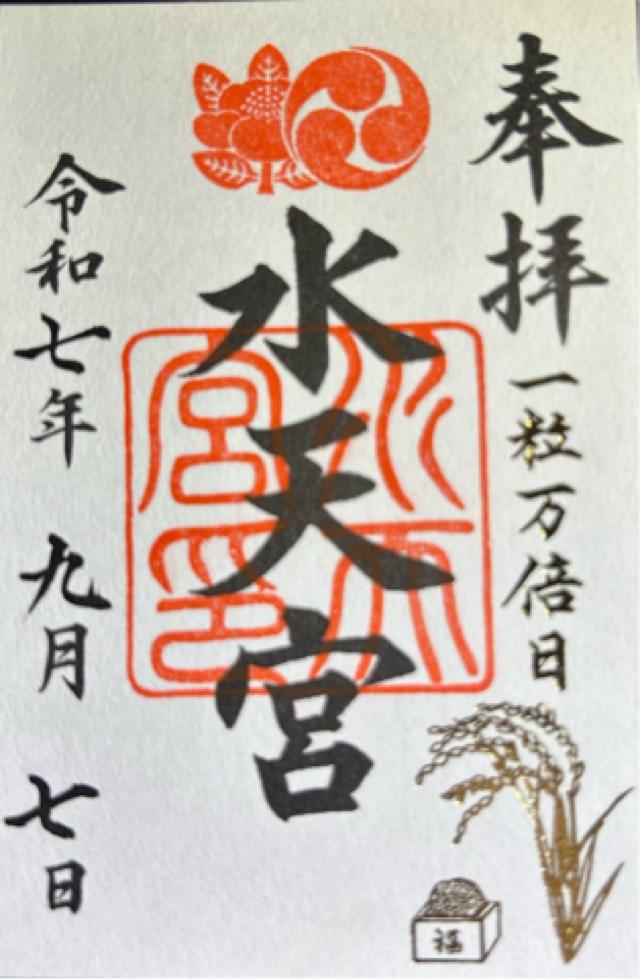 奉拝
一粒万倍日
水天宮
水天宮印
令和七年 九月 七日
福